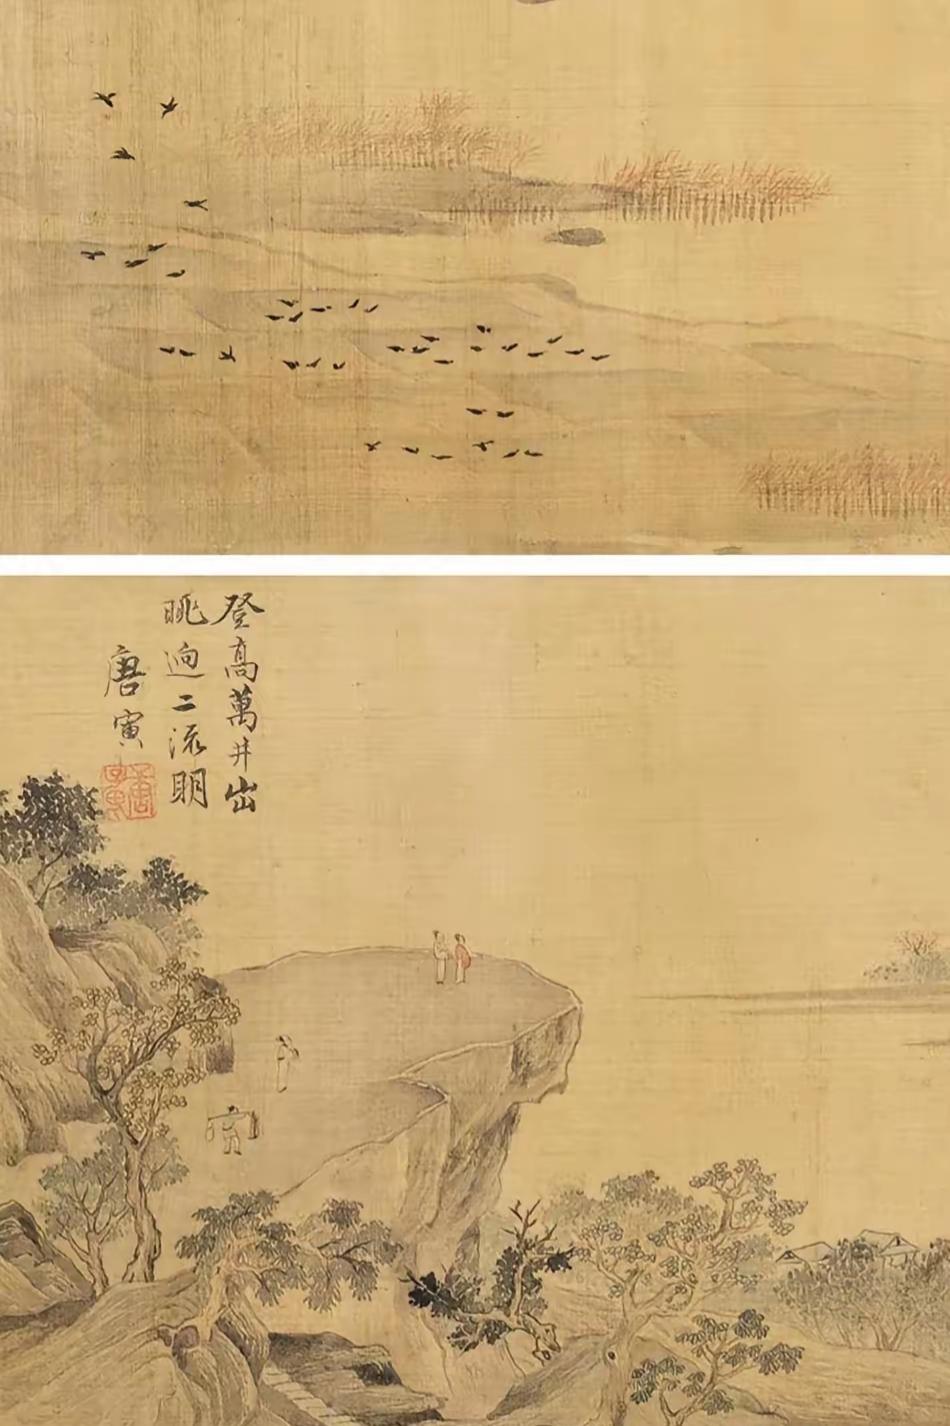 登高萬井出
眺迥二流明
唐寅